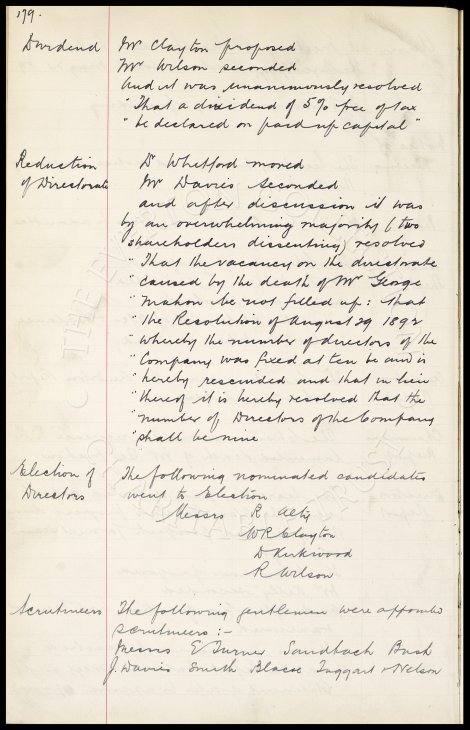 179.
Dividend Mr Clayton proposed
Mr Wilson seconded
And it was unanimously resolved
"That a dividend of 5% free of tax
"be declared on paid up capital"
Reduction Dr Whitford moved
of Directorate Mr Davis seconded
and after discussion it was
by an overwhelming majority (two
shareholders dissenting) resolved
"That the vacancy on the directorate
"caused by the death of Mr George
"Mahon be not filled up: that
"the Resolution of August 29 1892
"whereby the number of directors of the
"Company was fixed at ten be and is
"hereby rescinded and that in lieu
"thereof it is hereby resolved that the
"number of Directors of the Company
"shall be nine
Election of The following nominated candidates
Directors went to Election
Messrs R
W R Clayton
D Kirkwood
R Wilson
Scrutineers The following gentlemen were appointed
scrutineers:-
Messrs E Turner Sandbach Bush
J. Davies Smith Taggart & Nelson